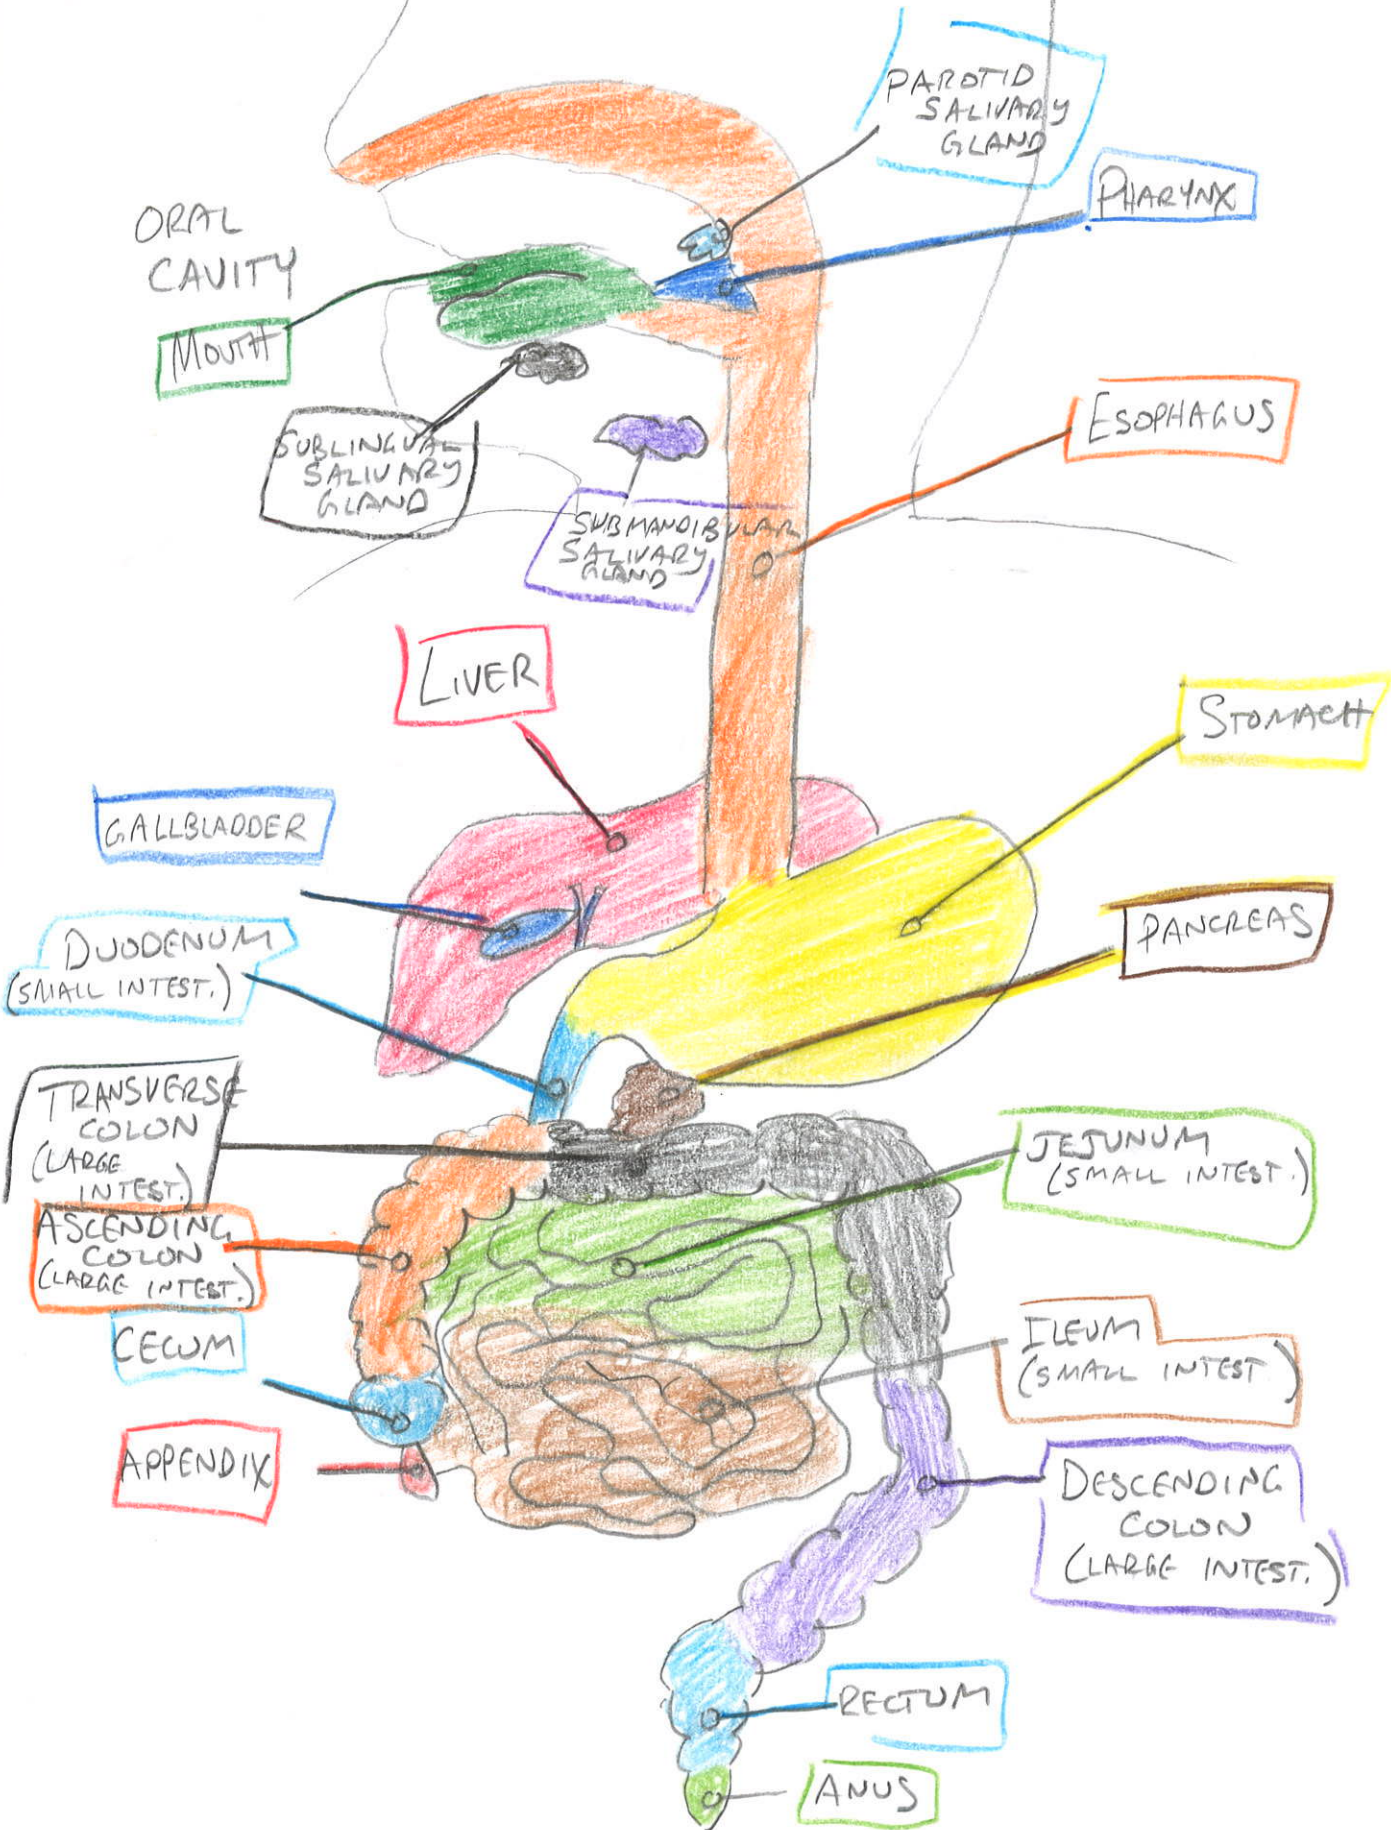 PAROTID
SALIVARY
GLAND
PHARYNX
ORAL
CAVITY
MOUTH
ESOPHAGUS
SUBLINGUAL
SALIVARY
GLAND
SUBMANDIBULAR
SALIVARY
GLAND
LIVER
STOMACH
GALLBLADDER
PANCREAS
DUODENUM
(SMALL INTEST.)
TRANSVERSE
COLON
(LARGE
INTEST.)
JEJUNUM
(SMALL INTEST.)
ASCENDING
COLON
(LARGE INTEST.)
CECUM
ILEUM
(SMALL INTEST)
APPENDIX
DESCENDING
COLON
(LARGE INTEST.)
RECTUM
ANUS